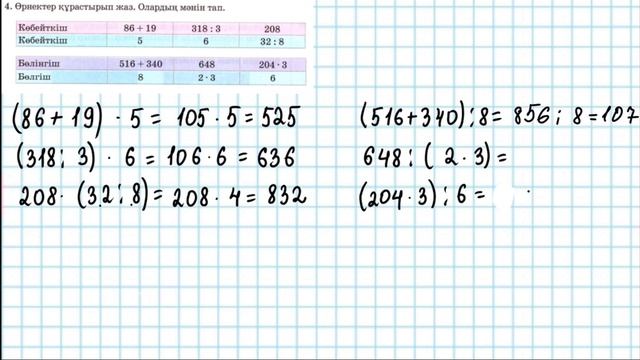 4. Өрнектер құрастырып жаз. Олардың мәнін тап.
Көбейткіш 86 + 19 318 : 3 208
Көбейткіш 5 6 32 : 8
Бөлінгіш 516 + 340 648 204 · 3
Бөлгіш 8 2 · 3 6
(86 + 19) · 5 = 105 · 5 = 525
(318 : 3) · 6 = 106 · 6 = 636
208 · (32 : 8) = 208 · 4 = 832
(516 + 340) : 8 = 856 : 8 = 107
648 : (2 · 3) =
(204 · 3) : 6 =